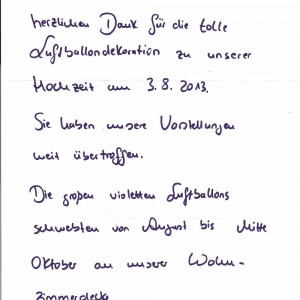 herzlichen Dank für die tolle
Luftballondekoration zu unserer
Hochzeit am 3.8.2013.
Sie haben unsere Vorstellungen
weit übertroffen.
Die großen violetten Luftballons
schwebten von August bis Mitte
Oktober an unserer Wohn-
zimmerdecke